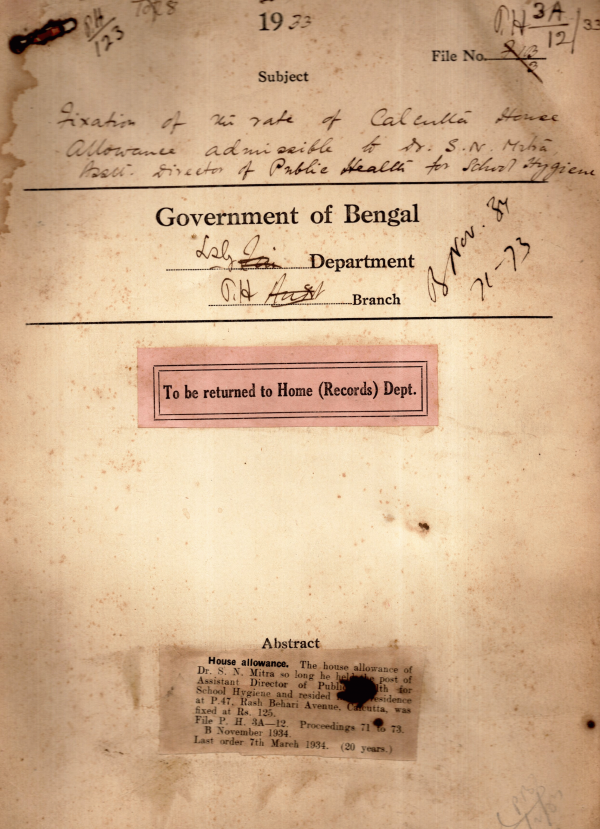 PH
123
1933
P.H 3A/12/33
File No.
Subject
Fixation of the rate of Calcutta House
Allowance admissible to Dr. S. N. Mitra
Asstt. Director of Public Health for School Hygiene
Government of Bengal
Department
P.H Branch
B Nov. 34
71-73
To be returned to Home (Records) Dept.
Abstract
House allowance. The house allowance of
Dr. S. N. Mitra so long he held the post of
Assistant Director of Public Health for
School Hygiene and resided residence
at P.47, Rash Behari Avenue, Calcutta, was
fixed at Rs. 125.
File P. H. 3A—12. Proceedings 71 to 73.
B November 1934.
Last order 7th March 1934. (20 years.)